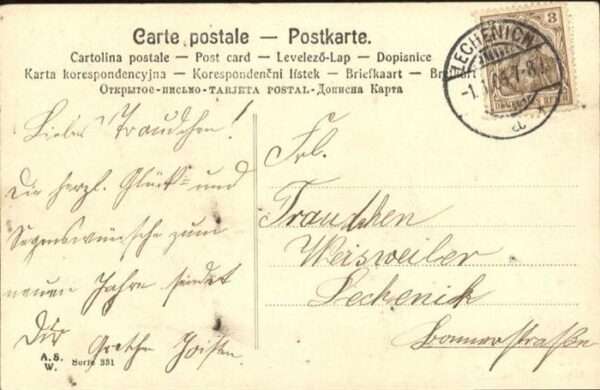 Carte postale — Postkarte.
Cartolina postale — Post card — Levelező-Lap — Dopisnice
Karta korespondencyjna — Korespondenční lístek — Briefkaart —
Открытое-письмо-TARJETA POSTAL-Дописна Карта
LECHENICH
3
Liebes Traudchen!
Die herzl. Glück- und
Segenswünsche zum
neuen Jahre sendet
Dir Grethe
A.S.
W.
Serie 331
Frl.
Traudchen
Weisweiler
Lechenich
Bonnerstraße